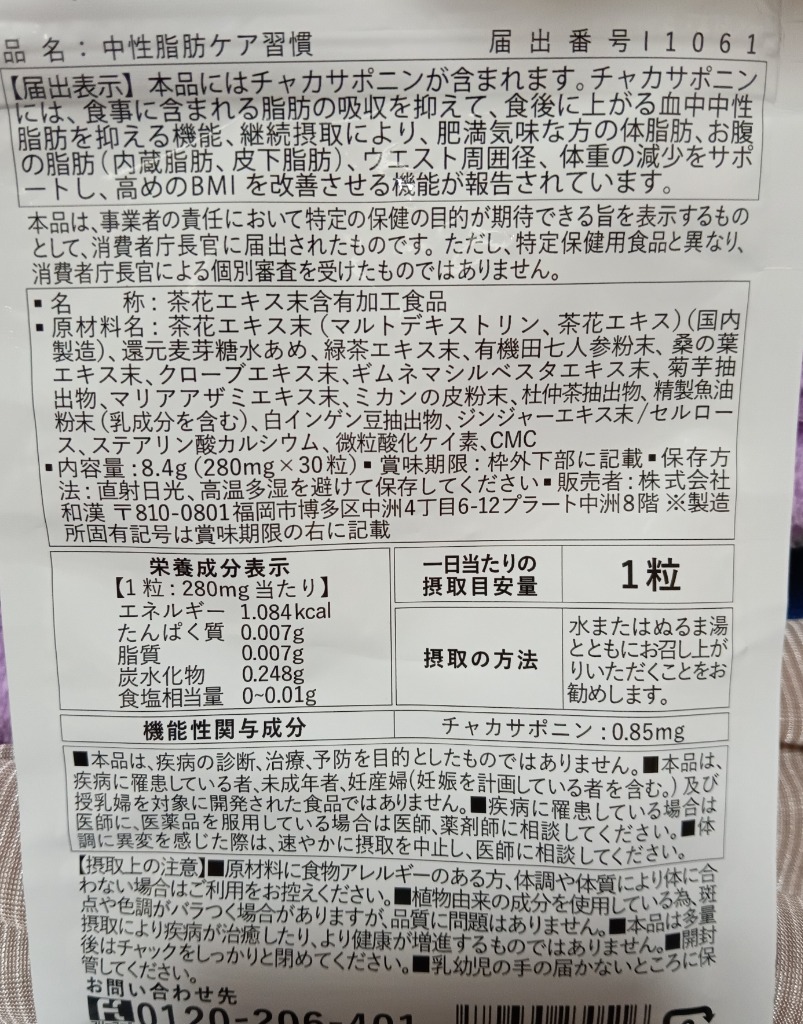 品 名：中性脂肪ケア習慣
届出番号I1061
【届出表示】本品にはチャカサポニンが含まれます。チャカサポニン
には、食事に含まれる脂肪の吸収を抑えて、食後に上がる血中中性
脂肪を抑える機能、継続摂取により、肥満気味な方の体脂肪、お腹
の脂肪（内蔵脂肪、皮下脂肪）、ウエスト周囲径、体重の減少をサポ
ートし、高めのBMIを改善させる機能が報告されています。
本品は、事業者の責任において特定の保健の目的が期待できる旨を表示するもの
として、消費者庁長官に届出されたものです。ただし、特定保健用食品と異なり、
消費者庁長官による個別審査を受けたものではありません。
▪名　　称：茶花エキス末含有加工食品
▪原材料名：茶花エキス末（マルトデキストリン、茶花エキス）（国内
製造）、還元麦芽糖水あめ、緑茶エキス末、有機田七人参粉末、桑の葉
エキス末、クローブエキス末、ギムネマシルベスタエキス末、菊芋抽
出物、マリアアザミエキス末、ミカンの皮粉末、杜仲茶抽出物、精製魚油
粉末（乳成分を含む）、白インゲン豆抽出物、ジンジャーエキス末/セルロー
ス、ステアリン酸カルシウム、微粒酸化ケイ素、CMC
▪内容量：8.4g（280mg×30粒）▪賞味期限：枠外下部に記載▪保存方
法：直射日光、高温多湿を避けて保存してください▪販売者：株式会社
和漢 〒810-0801福岡市博多区中洲4丁目6-12プラート中洲8階 ※製造
所固有記号は賞味期限の右に記載
栄養成分表示
【1粒：280mg当たり】
エネルギー 1.084kcal
たんぱく質 0.007g
脂質 0.007g
炭水化物 0.248g
食塩相当量 0~0.01g
一日当たりの
摂取目安量
1粒
摂取の方法
水またはぬるま湯
とともにお召し上が
りいただくことをお
勧めします。
機能性関与成分
チャカサポニン：0.85mg
■本品は、疾病の診断、治療、予防を目的としたものではありません。■本品は、
疾病に罹患している者、未成年者、妊産婦（妊娠を計画している者を含む。）及び
授乳婦を対象に開発された食品ではありません。■疾病に罹患している場合は
医師に、医薬品を服用している場合は医師、薬剤師に相談してください。■体
調に異変を感じた際は、速やかに摂取を中止し、医師に相談してください。
【摂取上の注意】■原材料に食物アレルギーのある方、体調や体質により体に合
わない場合はご利用をお控えください。■植物由来の成分を使用している為、斑
点や色調がバラつく場合がありますが、品質に問題はありません。■本品は多量
摂取により疾病が治癒したり、より健康が増進するものではありません。■開封
後はチャックをしっかりと閉めてください。■乳幼児の手の届かないところに保
管してください。
お問い合わせ先
0120-206-401